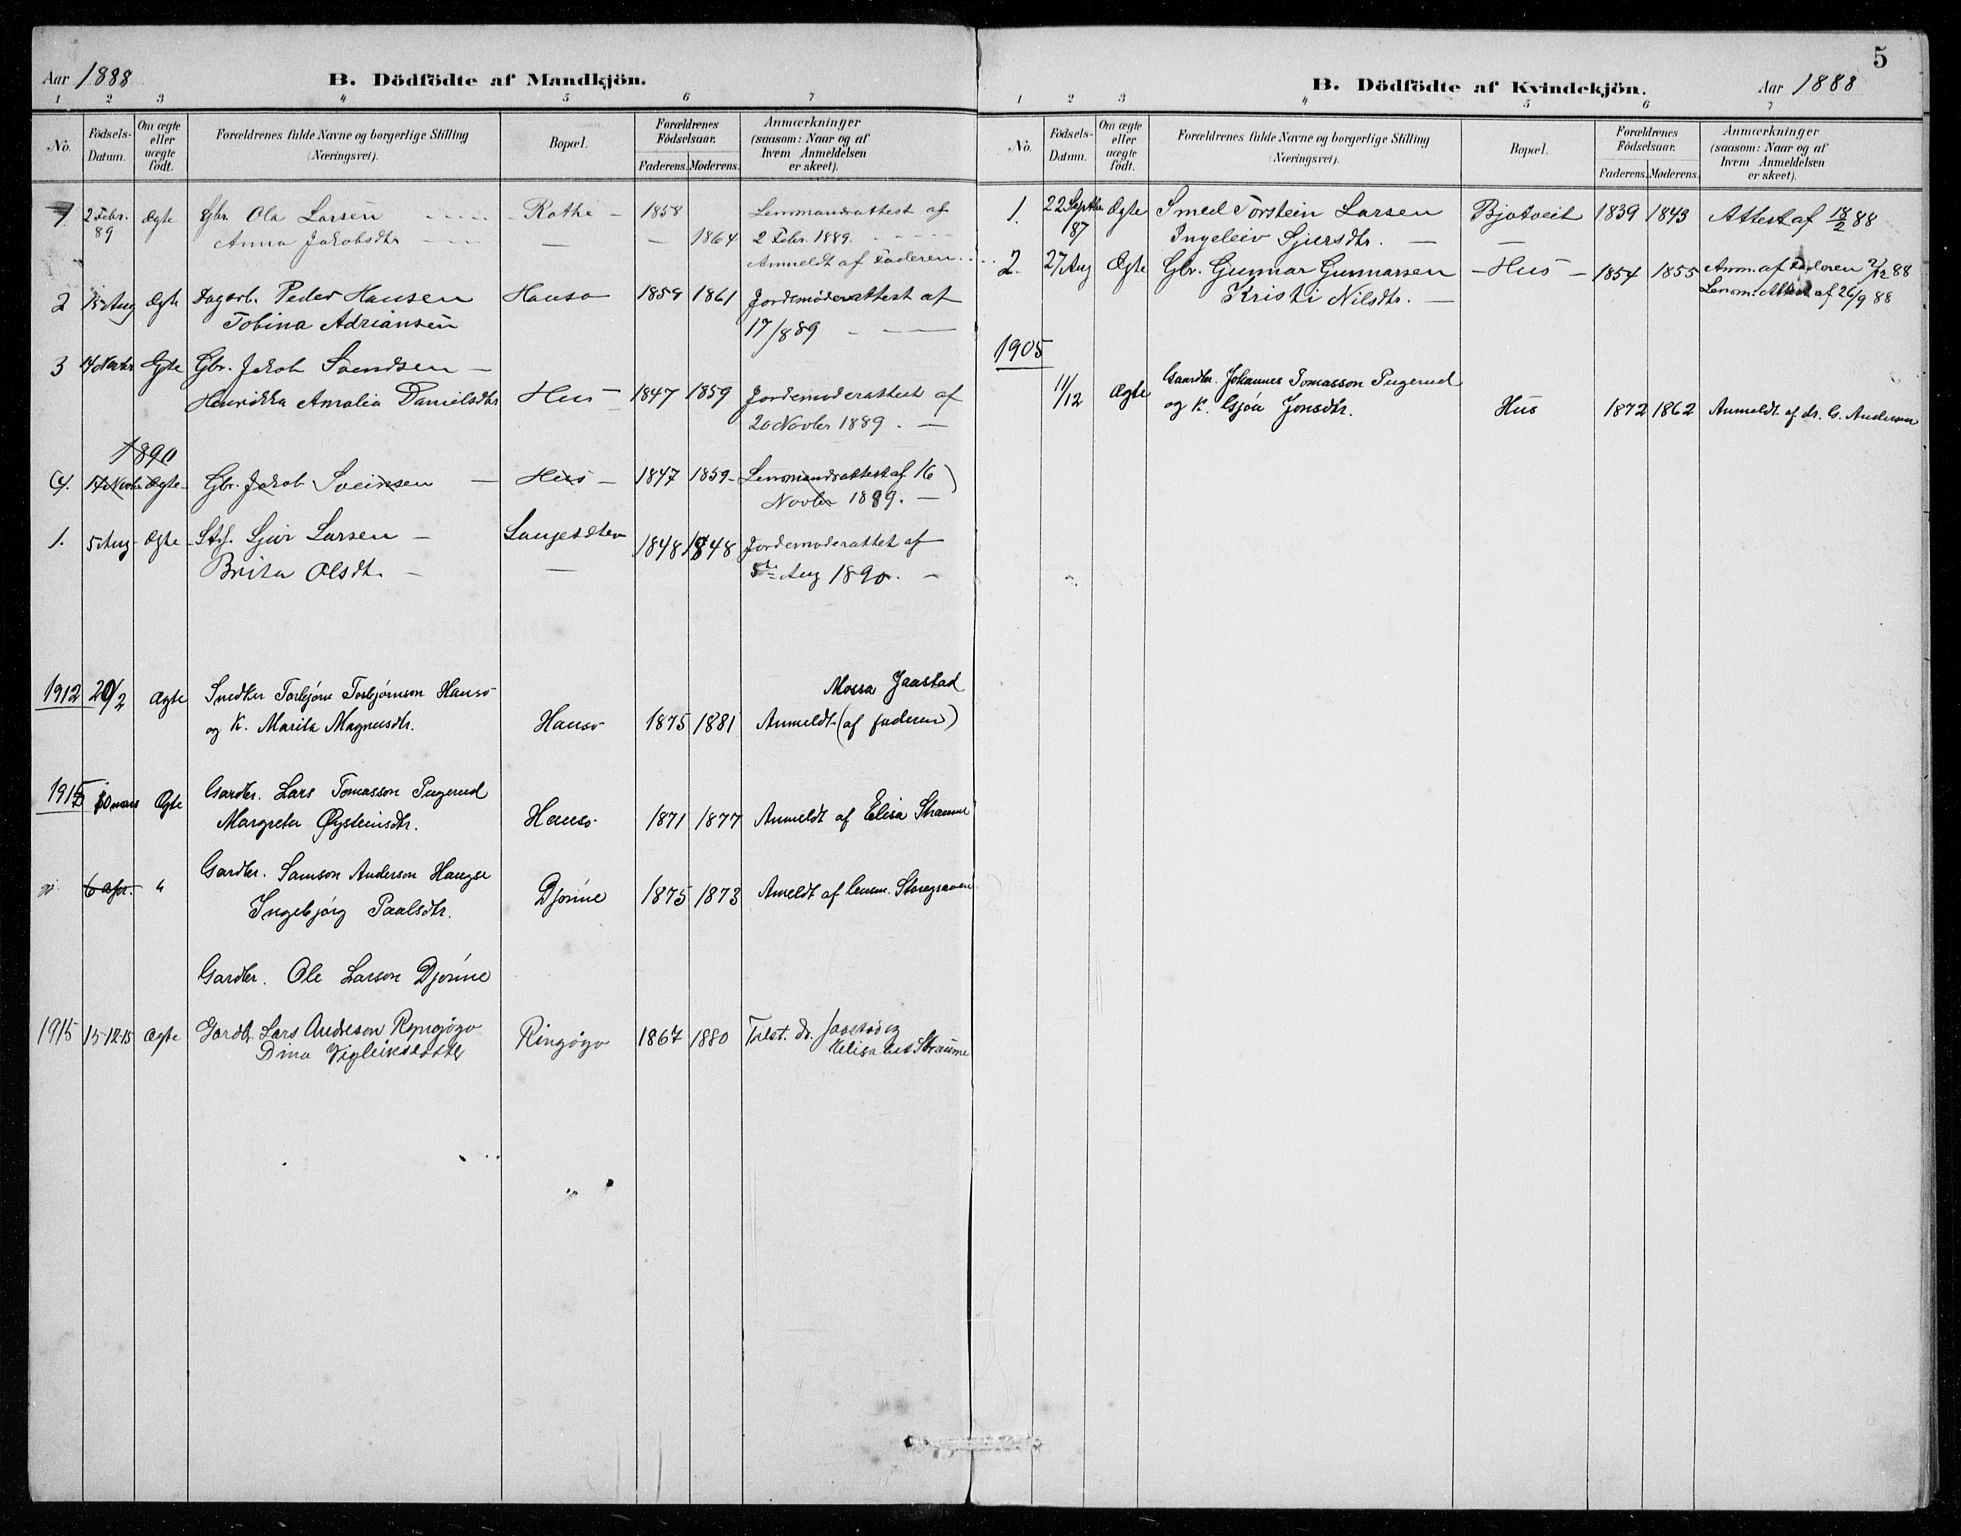 Aar 1888 B. Dödfödte af Mandkjön.
1 2 3 4 5 6 7
No. Födsels-Datum. Om ægte eller uægte födt. Forældrenes fulde Navne og borgerlige Stilling (Næringsvei). Bopæl. Forældrenes Födselsaar. Faderens. Moderens. Anmærkninger (saasom: Naar og af hvem Anmeldelsen er skeet).
1 2 Febr. Ægte Gbr. Ola Larsen Rathe 1858 Lensmandsattest af
89 Anna Jakobsdtr — 1864 2 Febr. 1889.
Anmeldt af Faderen.
2 15 Aug Ægte Dagarb. Peder Hansen Hauso 1859 1861 Jordemoderattest af
Tobina Adriansen 17/8 89
3 14 Novbr Ægte Gbr. Jakob Svendsen —
Henrikka Amalia Danielsdtr Hus — 1847 1859 Jordemoderattest af
20 Novbr 1889. —
1890
4. 17 Novbr Ægte Gbr. Jakob Sveinsen — Hus — 1847 1859 Lensmandsattest af 16
Novber 1889. —
1. 5 Aug Ægte Stf. Sjur Larsen — Langesæter 1848 1848 Jordemoderattet af
Brita Olsdt. — — 5te Aug 1890. —
Mossa Jaastad
1912 20/2 Ægte Snedker Torbjørn Torbjørnson Hauso
og K. Marita Magnusdtr. Hauso 1875 1881 Anmeldt (af faderen)
1915 10 mars Ægte Gardbr. Lars Tomasson Pugerud
Margreta Øysteinsdtr. Hauso 1871 1877 Anmeldt af Elisa Straume
6 apr. " Gardbr. Samson Anderson Haugse
Ingebjørg Paalsdtr. Djønne 1875 1873 Ameldt af lensm. Storegraven
Gardbr. Ole Larson Djønne
1915 15-12-15 Ægte Gardb. Lars Andreson Ringøyo Ringøyo 1867 1880 Tilst. dr. Jaastad og
Dina Vigleiksdotter Elisabet Straume
5
B. Dödfödte af Kvindekjön. Aar 1888
1 2 3 4 5 6 7
No. Födsels-Datum. Om ægte eller uægte födt. Forældrenes fulde Navne og borgerlige Stilling (Næringsvei). Bopæl. Forældrenes Födselsaar. Faderens. Moderens. Anmærkninger (saasom: Naar og af hvem Anmeldelsen er skeet).
1. 22 Septbr Ægte Smed Torstein Larsen Bjotveit 1839 1843 Attest af 18/2 88
87 Ingeleiv Sjursdtr. — —
2. 27 Aug Ægte Gbr. Gunnar Gunnarsen — Hus — 1854 1855 Anm. af Faderen 2/12 88
Kristi Nilsdtr. — Lensm. Attest af 26/9 88
1905
11/12 Ægte Gaardbr. Johannes Tomasson Pugerud
og K. Gjøa Jonsdtr. Hus 1872 1862 Anmeldt af dr. G. Andersen